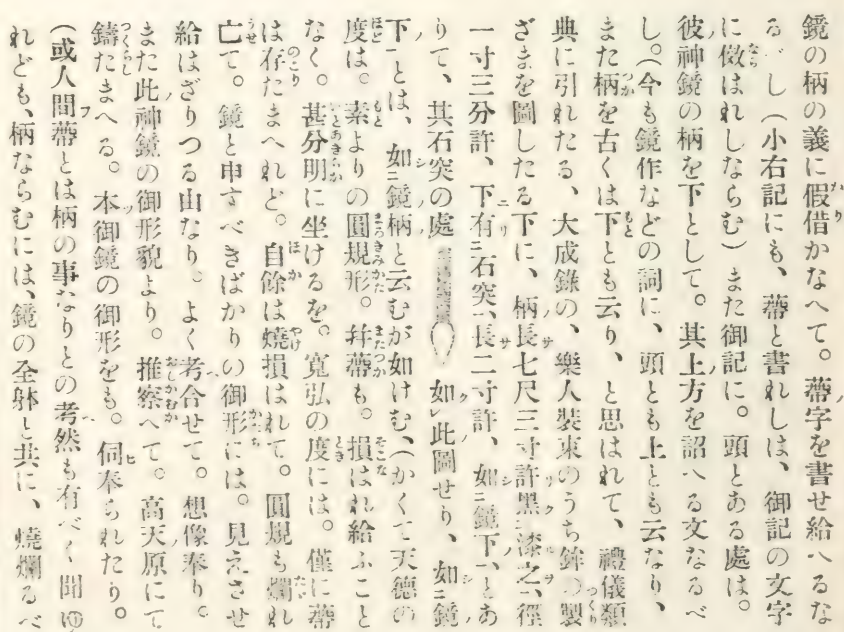 鏡の柄の義に假借かなへて。蔕字を書せ給へるな
るべし(小右記にも、蔕と書れしは、御記の文字
に傚はれしならむ)また御記に。頭とある處は。
彼神鏡の柄を下として。其上方を詔へる文なるべ
し。(今も鏡作などの詞に、頭とも上とも云なり、
また柄を古くは下とも云り、と思はれて、禮儀類
典に引れたる、大成錄の、樂人裝束のうち鉾の製
ざまを圖したる下に、柄長七尺三寸許黑漆之、徑
一寸三分許、下有石突、長二寸許、如鏡下、とあ
りて、其石突の處 如此圖せり、如鏡
下とは、如鏡柄と云むが如けむ、(かくて天德の
度は。素よりの圓規形。幷蔕も。損はれ給ふこと
なく。甚分明に坐けるを。寬弘の度には。僅に蔕
は存たまへれど。自餘は燒損はれて。圓規も爛れ
亡て。鏡と申すべきばかりの御形には。見えさせ
給はざりつる由なり。よく考合せて。想像奉り。
また此神鏡の御形貌より。推察へて。高天原にて
鑄たまへる。本御鏡の御形をも。伺奉られたり。
(或人間蔕とは柄の事なりとの考然も有べく聞ゆ
れども、柄ならむには、鏡の全躰と共に、燒爛るべ